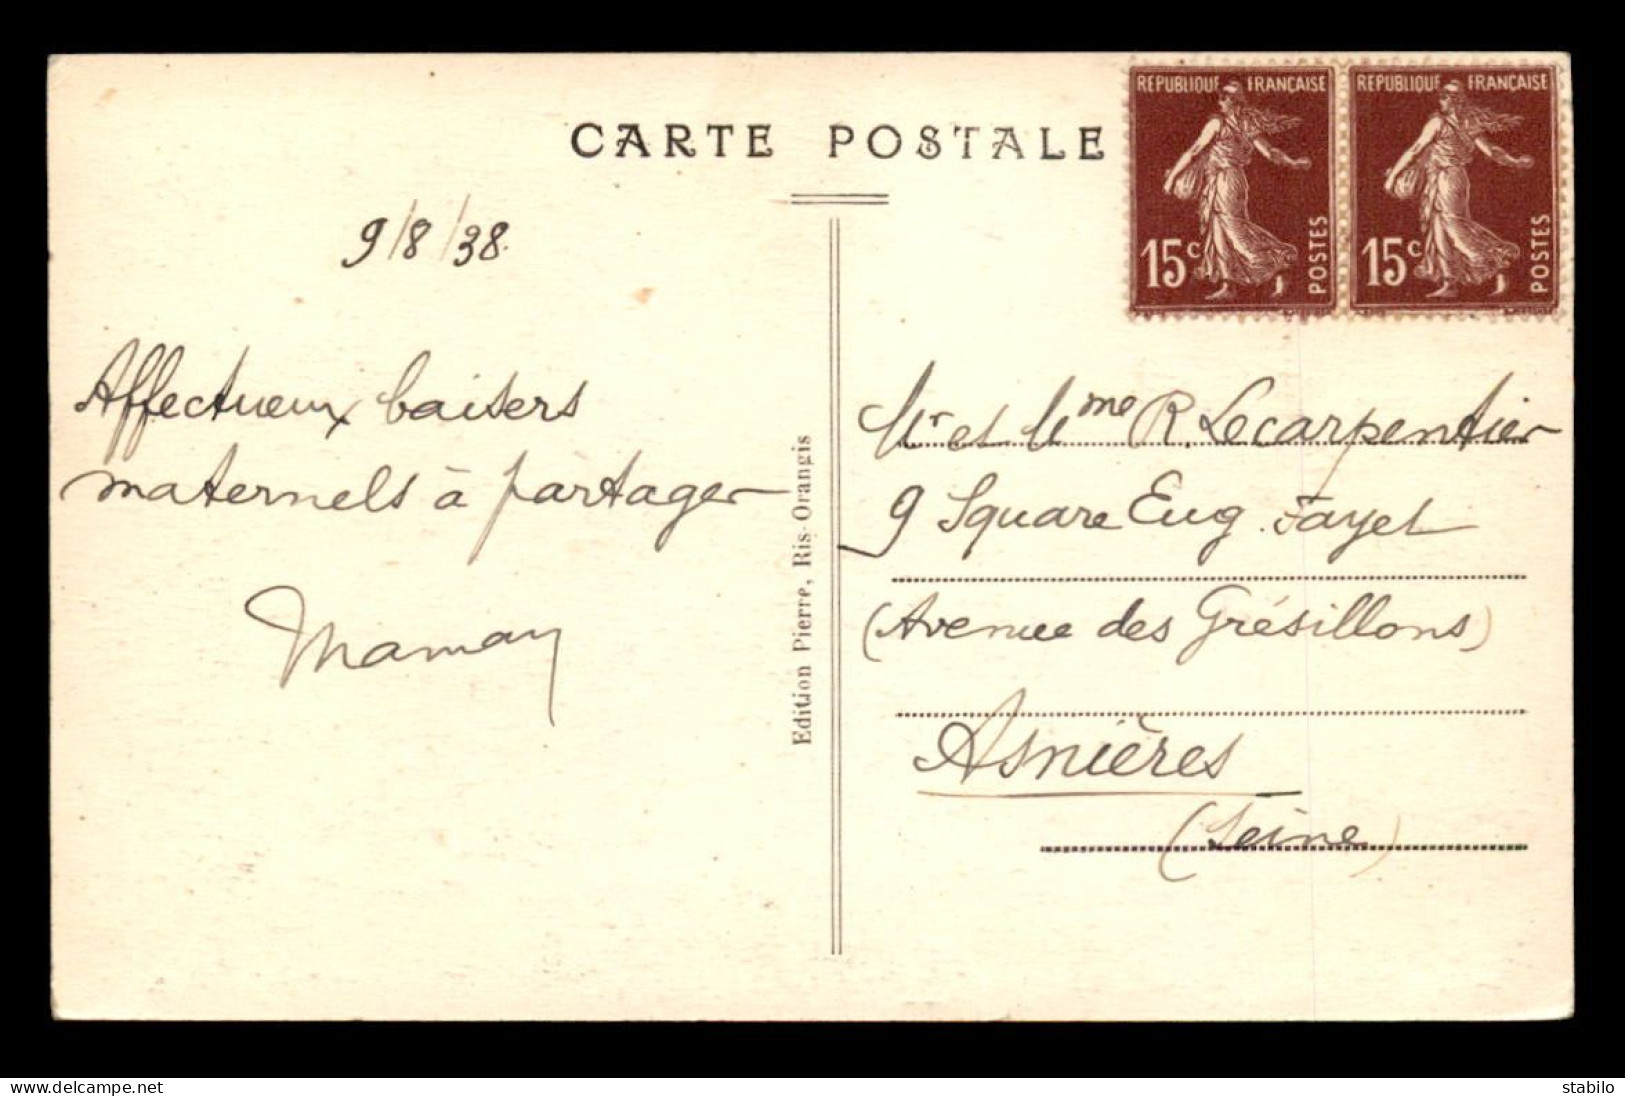 CARTE POSTALE
REPUBLIQUE FRANÇAISE
15c
POSTES
REPUBLIQUE FRANÇAISE
15c
POSTES
9/8/38.
Affectueux baisers
maternels à partager
Maman
Edition Pierre, Ris-Orangis
Mr et Mme R. Lecarpentier
9 Square Eug. Fayet
(Avenue des Grésillons)
Asnières
(Seine)
www.delcampe.net
stabilo